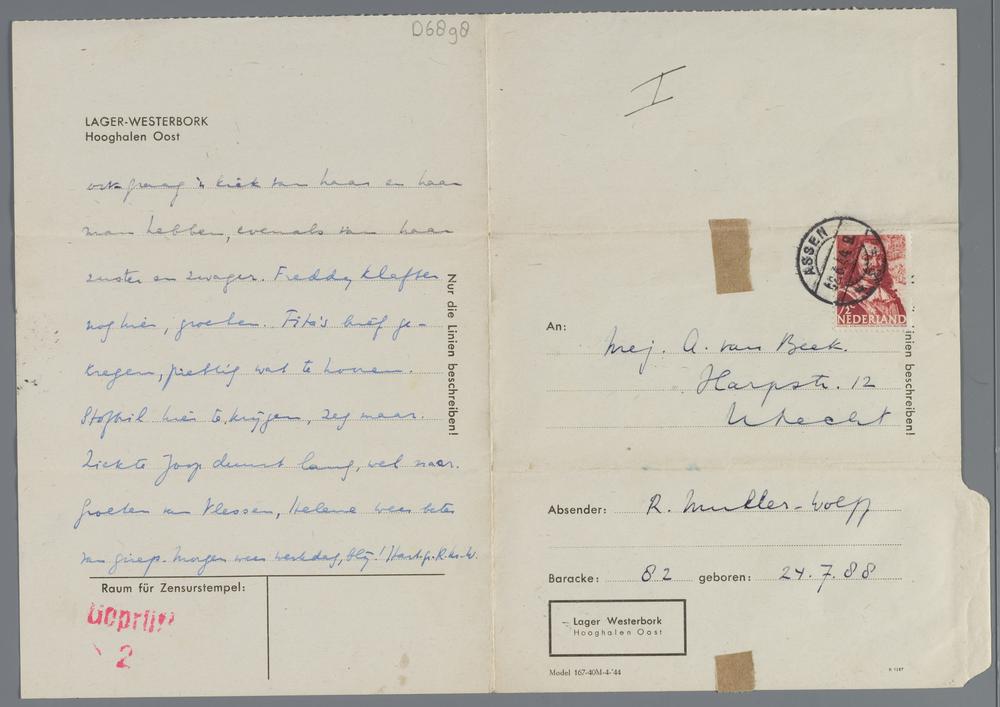 D6898
LAGER-WESTERBORK
Hooghalen Oost
ook graag 'n kiek van haar en haar
man hebben, evenals van haar
zuster en zwager. Freddy Klafter
nog hier, groeten. Fita's brief ge-
kregen, prettig wat te horen.
Stofbril hier te krijgen, zeg maar.
Ziekte Joop duurt lang, wel naar.
Groeten van Vlessen, Helene weer beter
van griep. Morgen weer werkdag, blij! Hart. gr. R. M. W.
Nur die Linien beschreiben!
Raum für Zensurstempel:
Geprüft
2
I
ASSEN
NEDERLAND
An:
Mej. A. van Beek.
Harpstr. 12
Utrecht
inien beschreiben!
Absender: R. Muller-Wolff
Baracke: 82 geboren: 24.7.88
Lager Westerbork
Hooghalen Oost
Model 167-40M-4-'44
K 1287